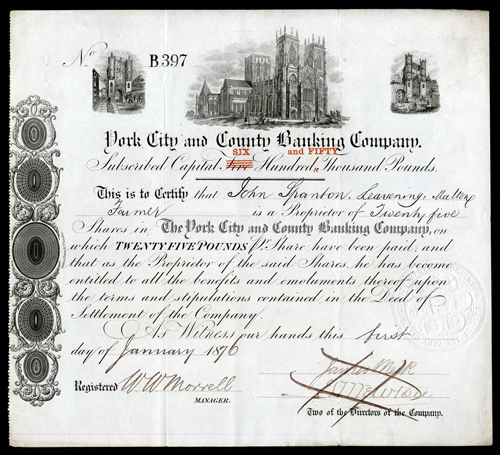 No B397
York City and County Banking Company.
SIX and FIFTY
Subscribed Capital five Hundred Thousand Pounds.
This is to Certify that John Spanton, Leavening, Malton
Farmer is a Proprietor of Twenty five
Shares in The York City and County Banking Company, on
which TWENTY FIVE POUNDS pr Share have been paid; and
that as the Proprietor of the said Shares, he has become
entitled to all the benefits and emoluments thereof upon
the terms and stipulations contained in the Deed of
Settlement of the Company.
As Witness our hands this first
day of January 1876
Registered W. W. Morrell
MANAGER.
Two of the Directors of the Company.